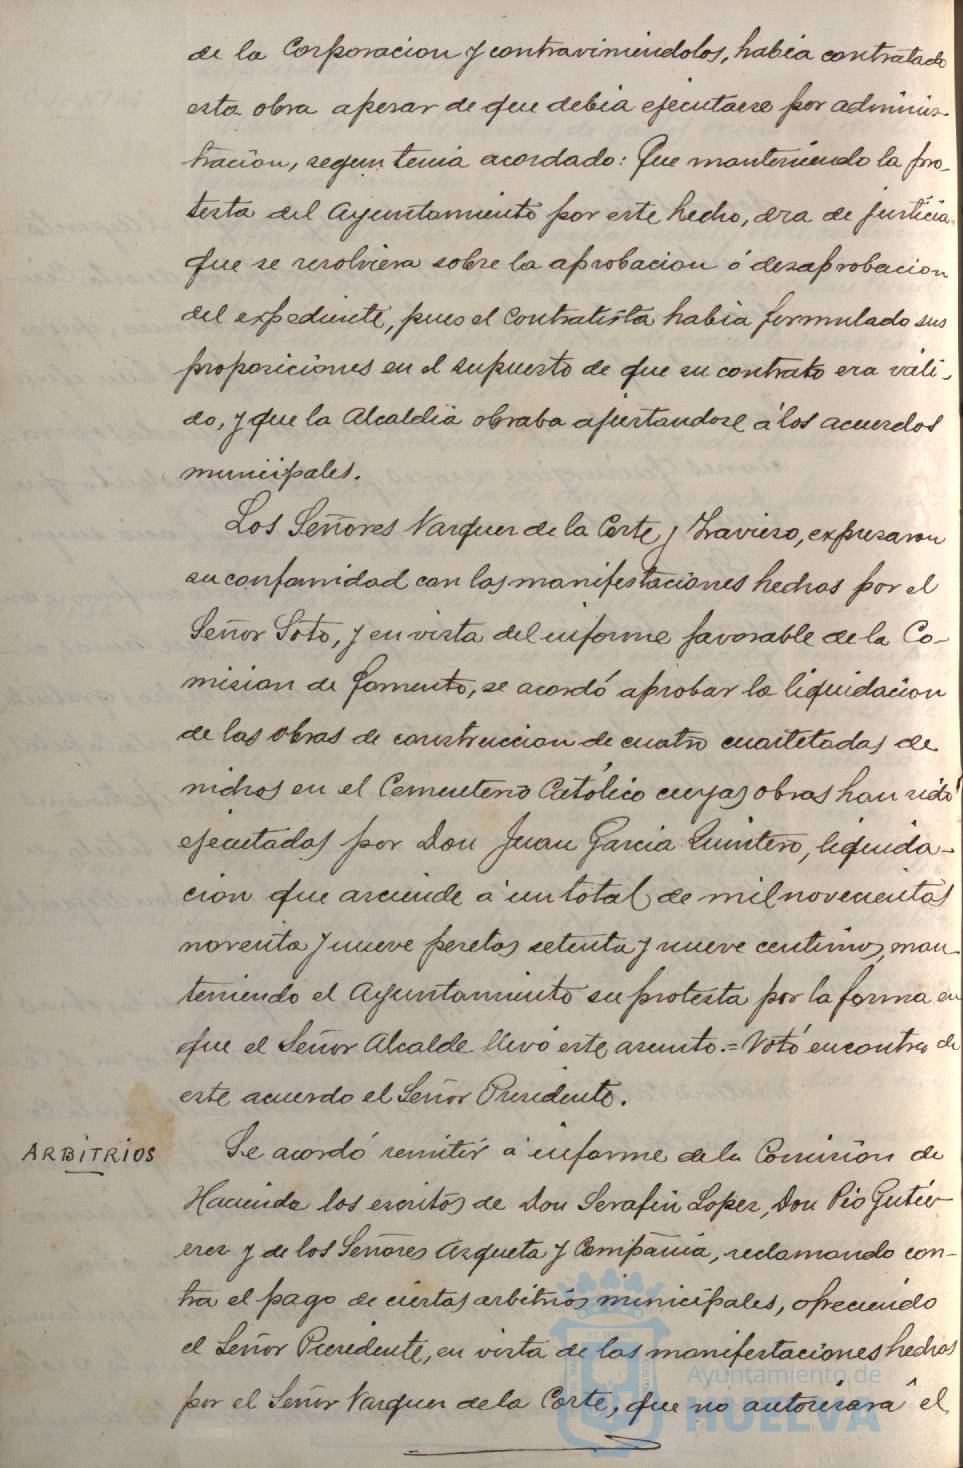 de la Corporacion y contraviniendolos, habia contratado
esta obra apesar de que debia ejecutarse por adminis-
tracion, segun tenia acordado: Que manteniendo la pro-
testa del Ayuntamiento por este hecho, era de justicia
que se resolviera sobre la aprobacion ó desaprobacion
del expediente, pues el contratista habia formulado sus
proposiciones en el supuesto de que su contrato era váli-
do, y que la Alcaldia obraba ajustandose á los acuerdos
municipales.
Los Señores Vazquez de la Corte y Travieso, expresaron
su conformidad con las manifestaciones hechas por el
Señor Soto, y en vista del informe favorable de la Co-
mision de fomento, se acordó aprobar la liquidacion
de las obras de construccion de cuatro cuarteladas de
nichos en el Cementerio Católico cuyas obras han sido
ejecutadas por Don Juan Garcia Quintero, liquida-
cion que asciende á un total de mil novecientas
noventa y nueve pesetas setenta y nueve centimos, man-
teniendo el Ayuntamiento su protesta por la forma en
que el Señor Alcalde llevó este asunto.= Votó en contra de
este acuerdo el Señor Presidente.
ARBITRIOS
Se acordó remitir á informe de la Comision de
Hacienda los escritos de Don Serafin Lopez, Don Pio Gutier-
rez y de los Señores Azqueta y Compañia, reclamando con-
tra el pago de ciertos arbitrios municipales, ofreciendo
el Señor Presidente, en vista de las manifestaciones hechas
por el Señor Vazquez de la Corte, que no autorizará el
Ayuntamiento de
HUELVA